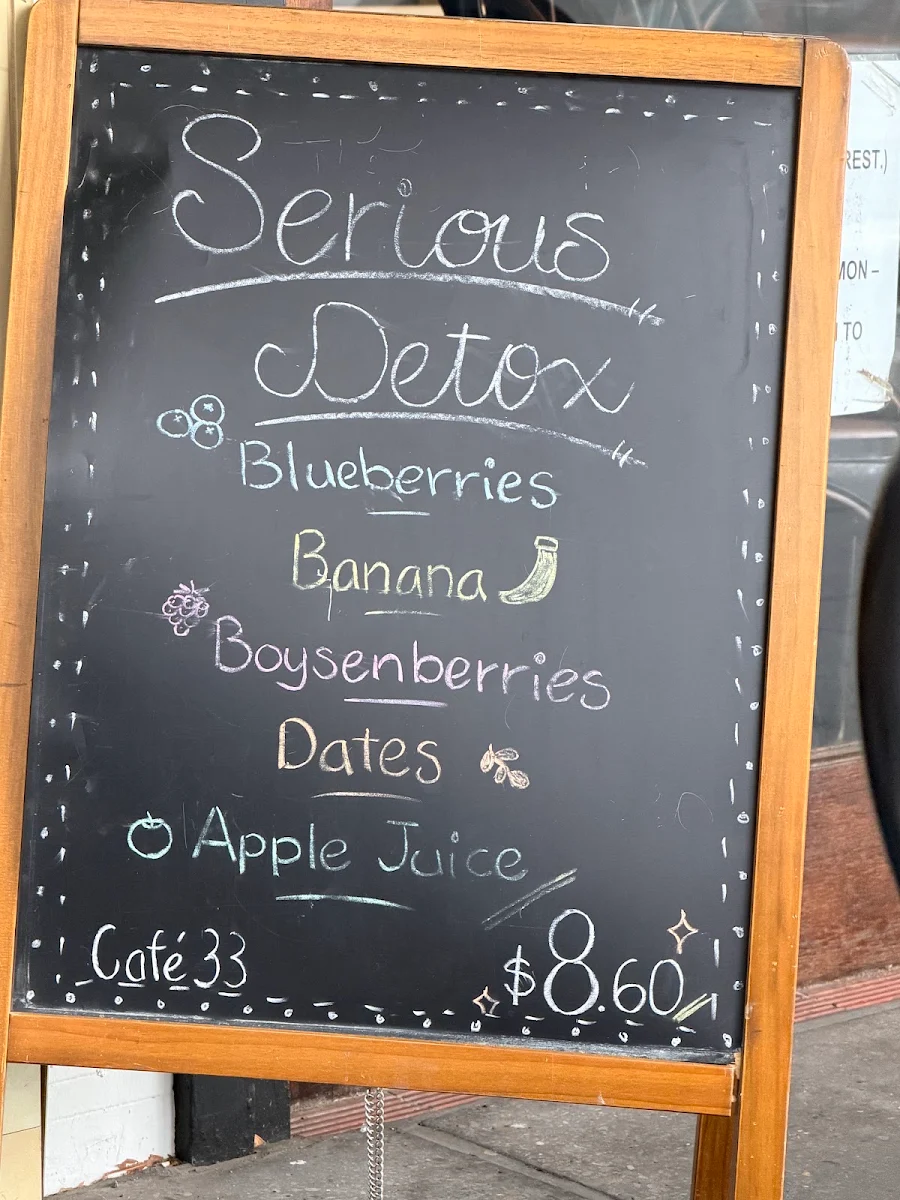 Serious
Detox
Blueberries
Banana
Boysenberries
Dates
Apple Juice
Café 33
$8.60
REST.)
MON –
TO